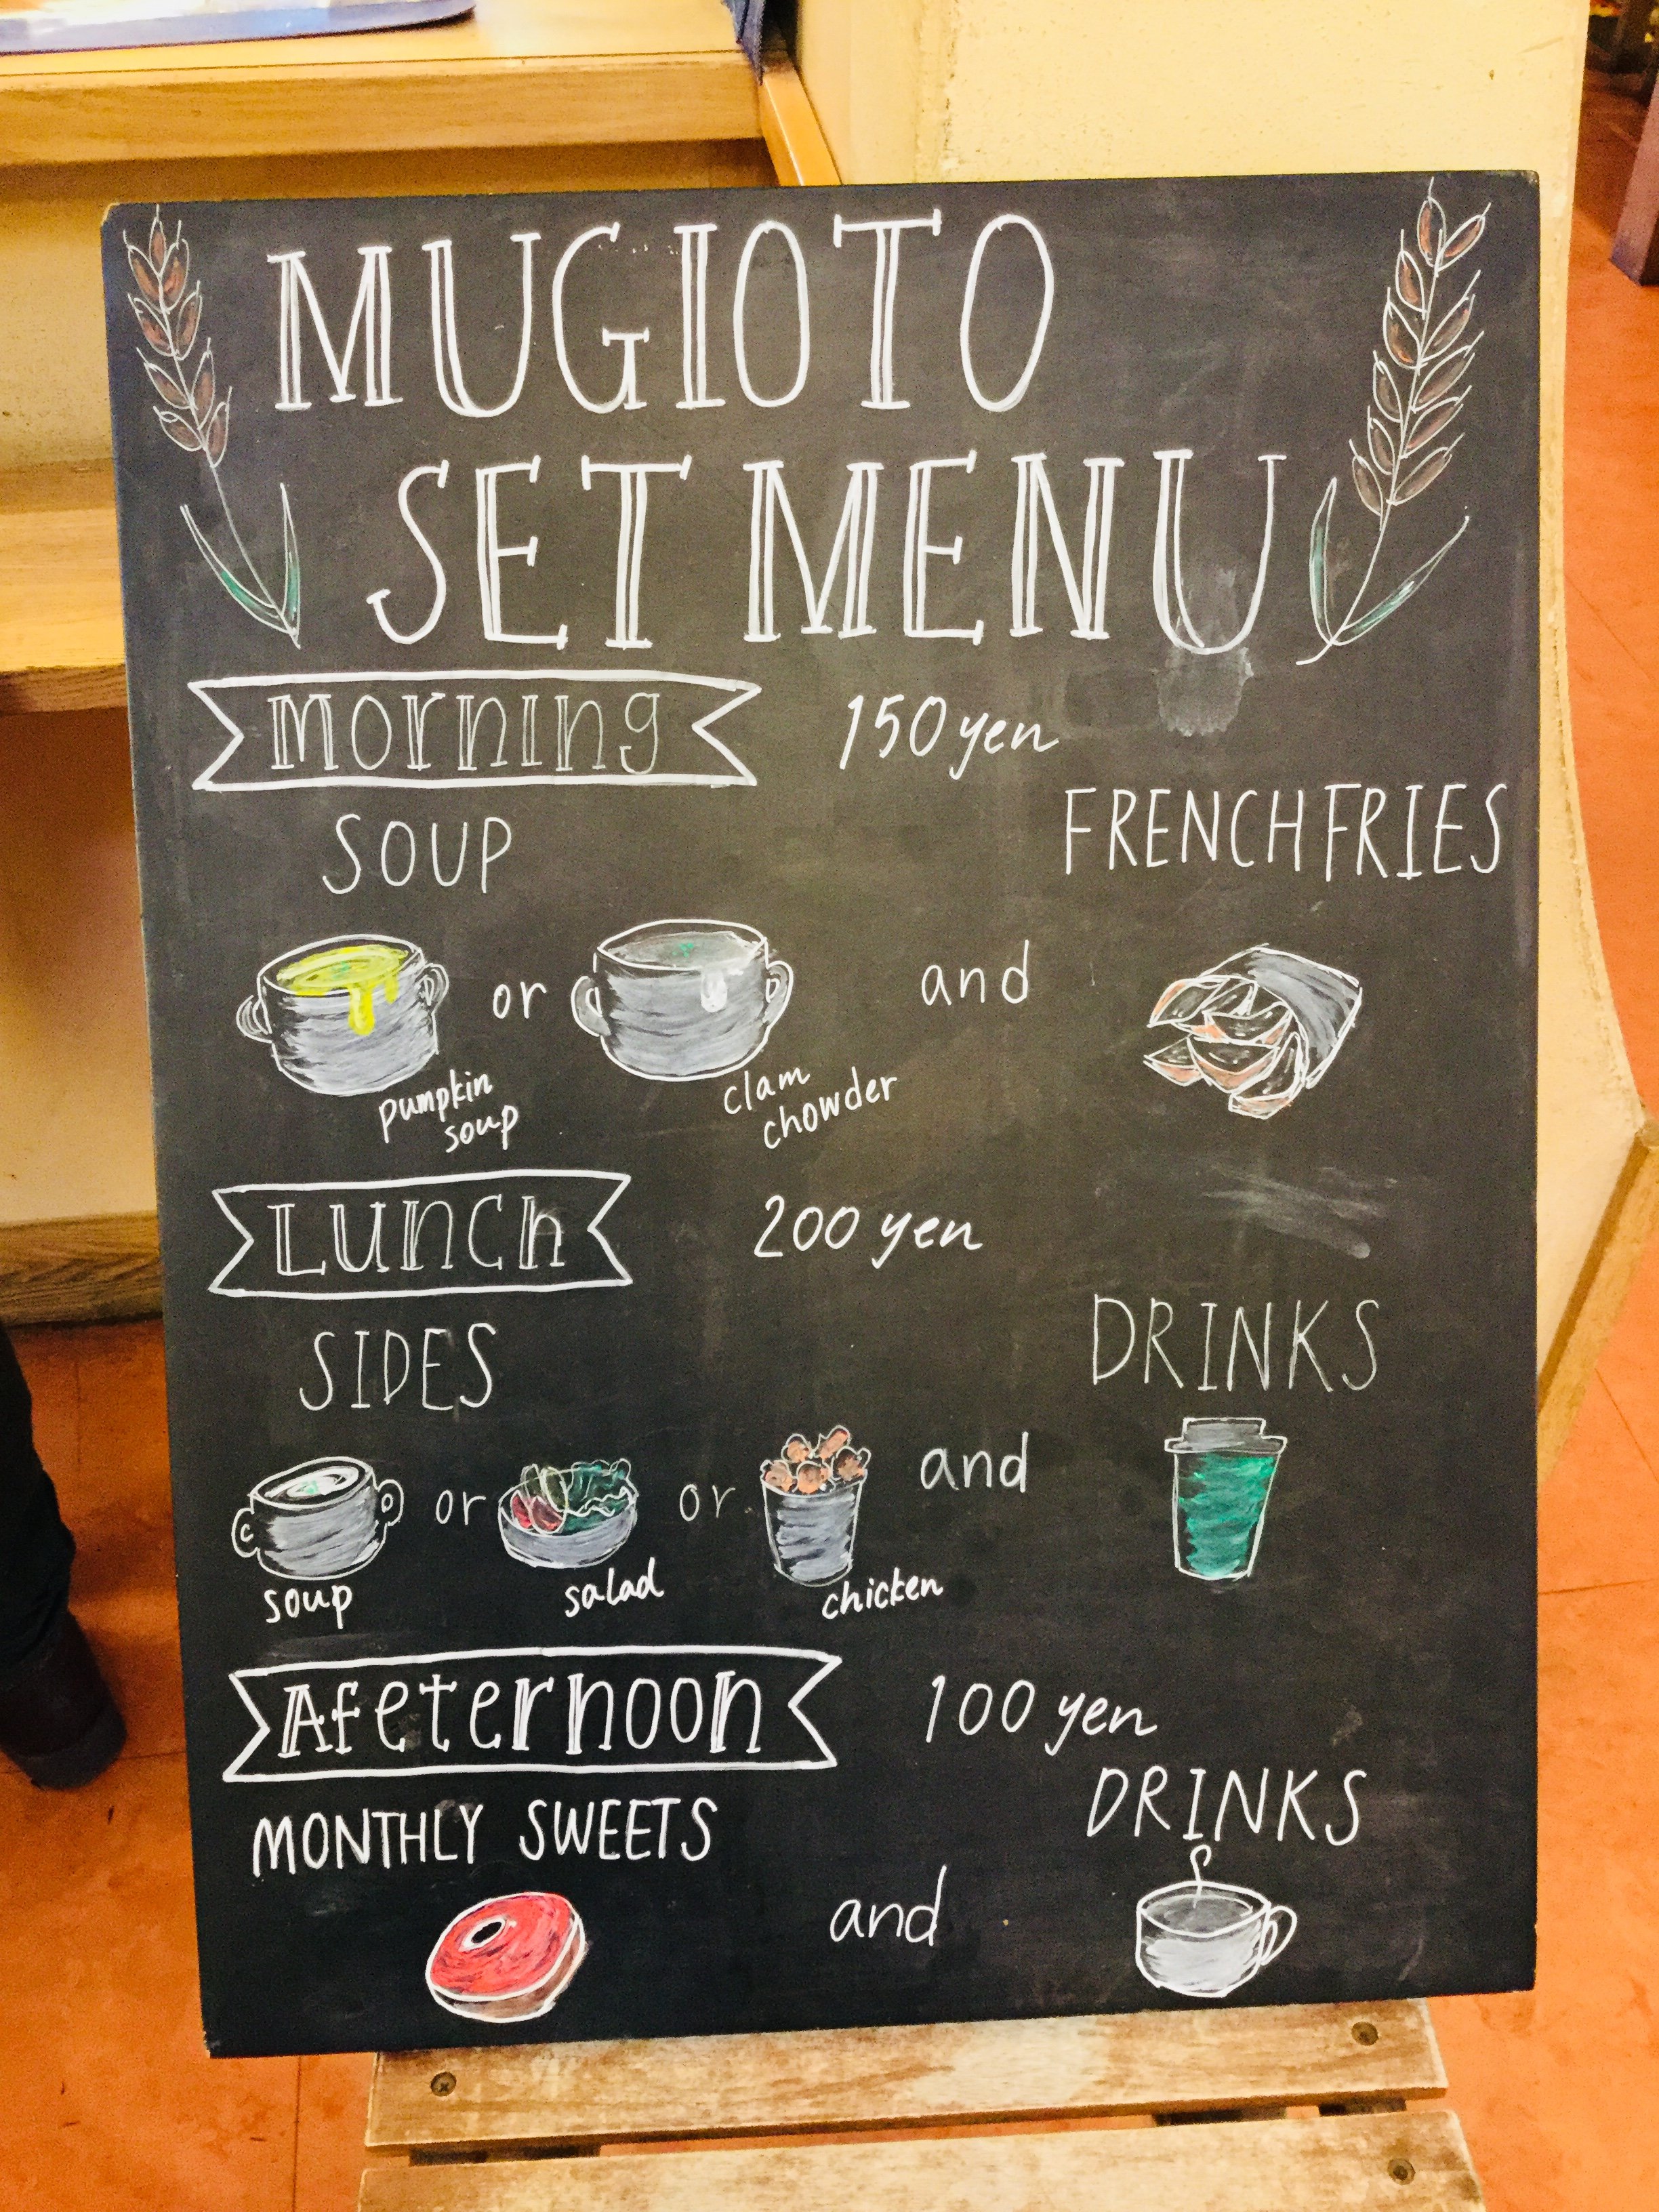 MUGIOTO
SET MENU
Morning 150 yen
SOUP FRENCH FRIES
or and
pumpkin
soup
clam
chowder
Lunch 200 yen
SIDES DRINKS
or or and
soup salad chicken
Afeternoon 100 yen
MONTHLY SWEETS DRINKS
and